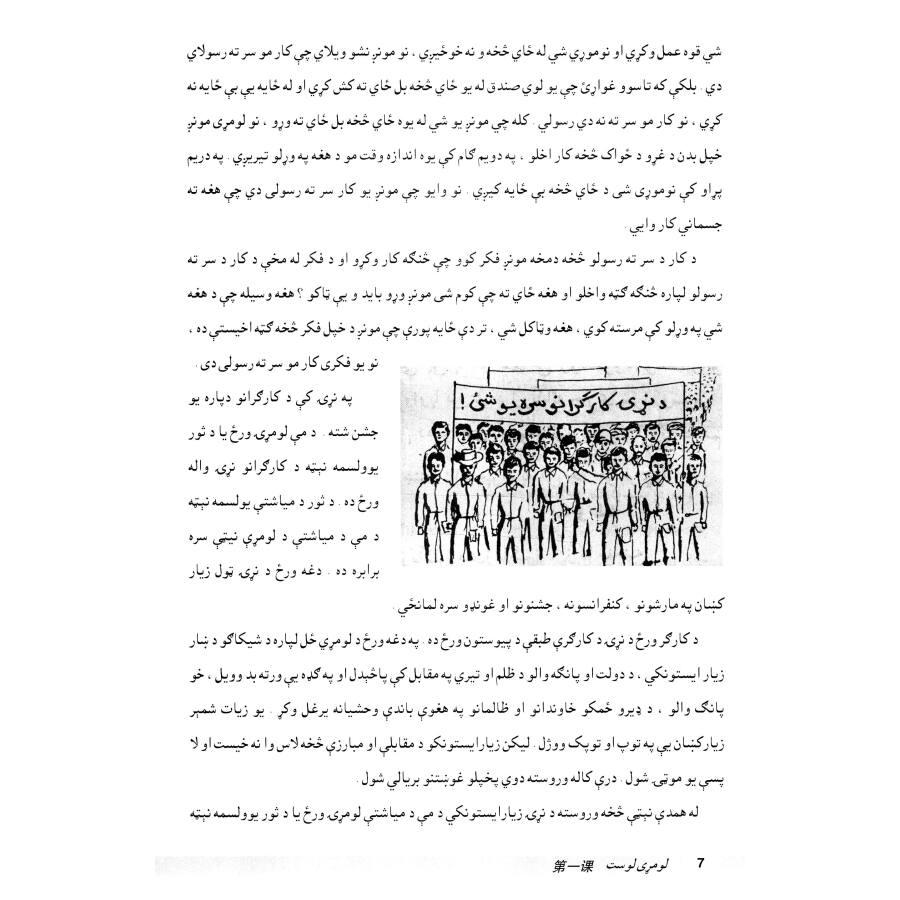 شي قوه عمل وکړي او نوموړي شي له ځای څخه و نه خوځيږي ، نو مونږ نشو ويلاي چې کار مو سر ته رسولاي
دي . بلکې که تاسوو غواړئ چې يو لوي صندق له يو ځای څخه بل ځای ته کش کړي او له ځايه يې بې ځايه نه
کړي ، نو کار مو سر ته نه دي رسولي . کله چي مونږ يو شي له يوه ځای څخه بل ځای ته وړو ، نو لومړی مونږ
خپل بدن د غړو د ځواک څخه کار اخلو ، په دويم ګام کې يوه اندازه وقت مو د هغه په وړلو تيريږي . په دريم
پړاو کې نوموړی شی د ځای څخه بې ځايه کيږي . نو وايو چې مونږ يو کار سر ته رسولی دي چې هغه ته
جسماني کار وايي .
د کار د سر ته رسولو څخه دمخه مونږ فکر کوو چې څنګه کار وکړو او د فکر له مخې د کار د سر ته
رسولو لپاره څنګه ګټه واخلو او هغه ځاي ته چې کوم شی مونږ وړو بايد و يې ټاکو ؟ هغه وسيله چې د هغه
شي په وړلو کې مرسته کوي ، هغه وټاکل شي ، تر دې ځايه پورې چې مونږ د خپل فکر څخه ګټه اخيستې ده ،
نو يو فکری کار مو سر ته رسولی دی .
د نړۍ کارګرانو سره يو شئ !
په نړۍ کې د کارګرانو دپاره يو
جشن شته . د مې لومړۍ ورځ يا د ثور
يوولسمه نېټه د کارګرانو نړۍ واله
ورځ ده . د ثور د مياشتې يولسمه نېټه
د مې د مياشتې د لومړې نيټې سره
برابره ده . دغه ورځ د نړۍ ټول زيار
کښان په مارشونو ، کنفرانسونه ، جشنونو او غونډو سره لمانځي .
د کارګر ورځ د نړۍ د کارګرې طبقې د پيوستون ورځ ده . په دغه ورځ د لومړي ځل لپاره د شيکاګو د ښار
زيار ايستونکي ، د دولت او پانګه والو د ظلم او تيري په مقابل کې پاڅېدل او په ګډه يې ورته بد وويل ، خو
پانګ والو ، د ډيرو ځمکو خاوندانو او ظالمانو په هغوې باندې وحشيانه يرغل وکړ . يو زيات شمېر
زيارکښان يې په توپ او توپک ووژل . ليکن زيارايستونکو د مقابلې او مبارزې څخه لاس وا نه خيست او لا
پسې يو موټی شول . درې کاله وروسته دوي پخپلو غوښتنو بريالي شول .
له همدې نېټې څخه وروسته د نړۍ زيارايستونکي د مې د مياشتې لومړۍ ورځ يا د ثور يوولسمه نېټه
7 لومړی لوست 第一课